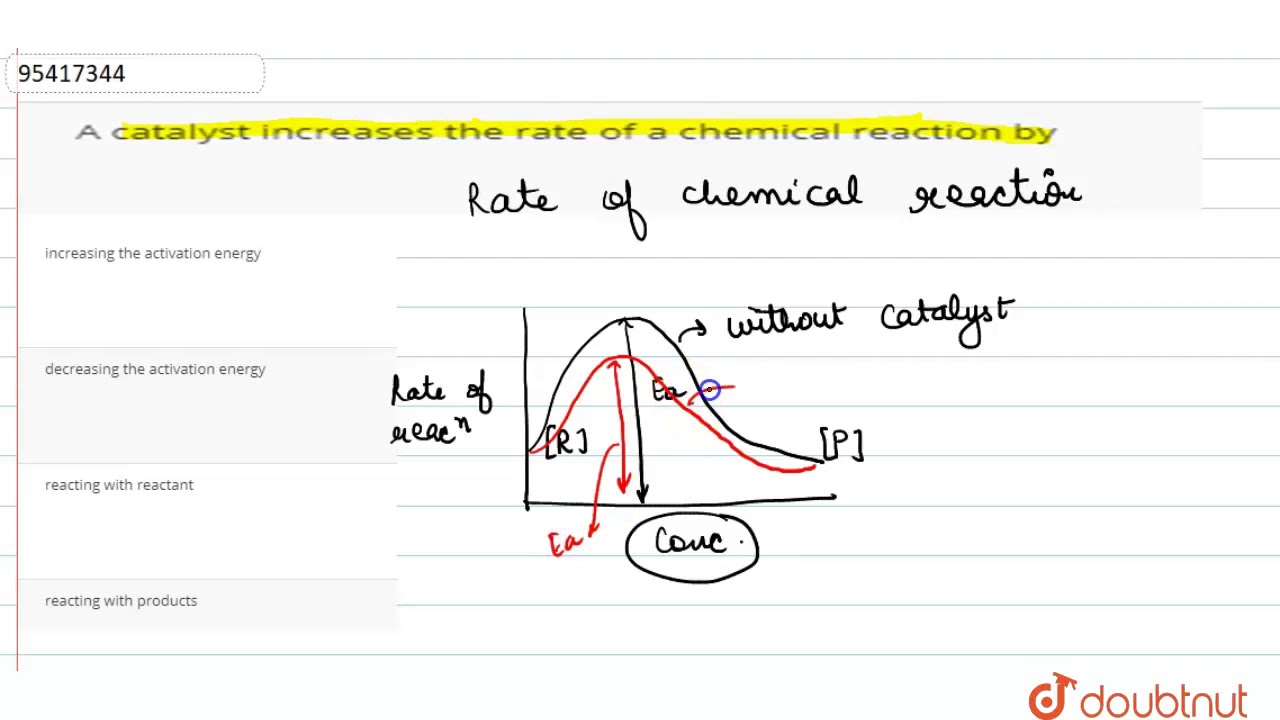 95417344
A catalyst increases the rate of a chemical reaction by
Rate of chemical reaction
increasing the activation energy
decreasing the activation energy
reacting with reactant
reacting with products
without catalyst
Rate of
reacⁿ
Ea
[R]
[P]
Ea
Conc.
doubtnut